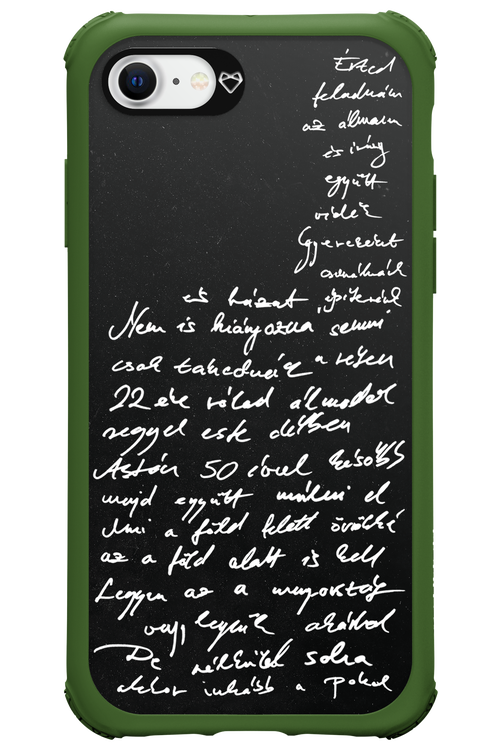 Érted
feladnám
az álmom
és így
együtt
Gyerekeket
csinálnánk
és házat építenék
Nem is hiányozna semmi
csak
22 éve rólad álmodok
reggel este délben
Aztán 50 évvel később
majd együtt múlni el
Ami a föld felett örökké
az a föld alatt is kell
Legyen az a mennyország
vagy legyünk akárhol
De nélküled soha
akkor inkább a Pokol